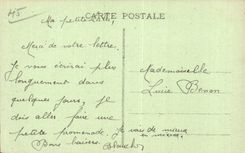 45
CARTE POSTALE
Ma petite
Merci de votre lettre.
Je vous écrirai plus
longuement dans
quelques jours, je
dois aller faire une
petite promenade. Je vais de mieux
en mieux.
Bons baisers Blanche
Mademoiselle
Lucie